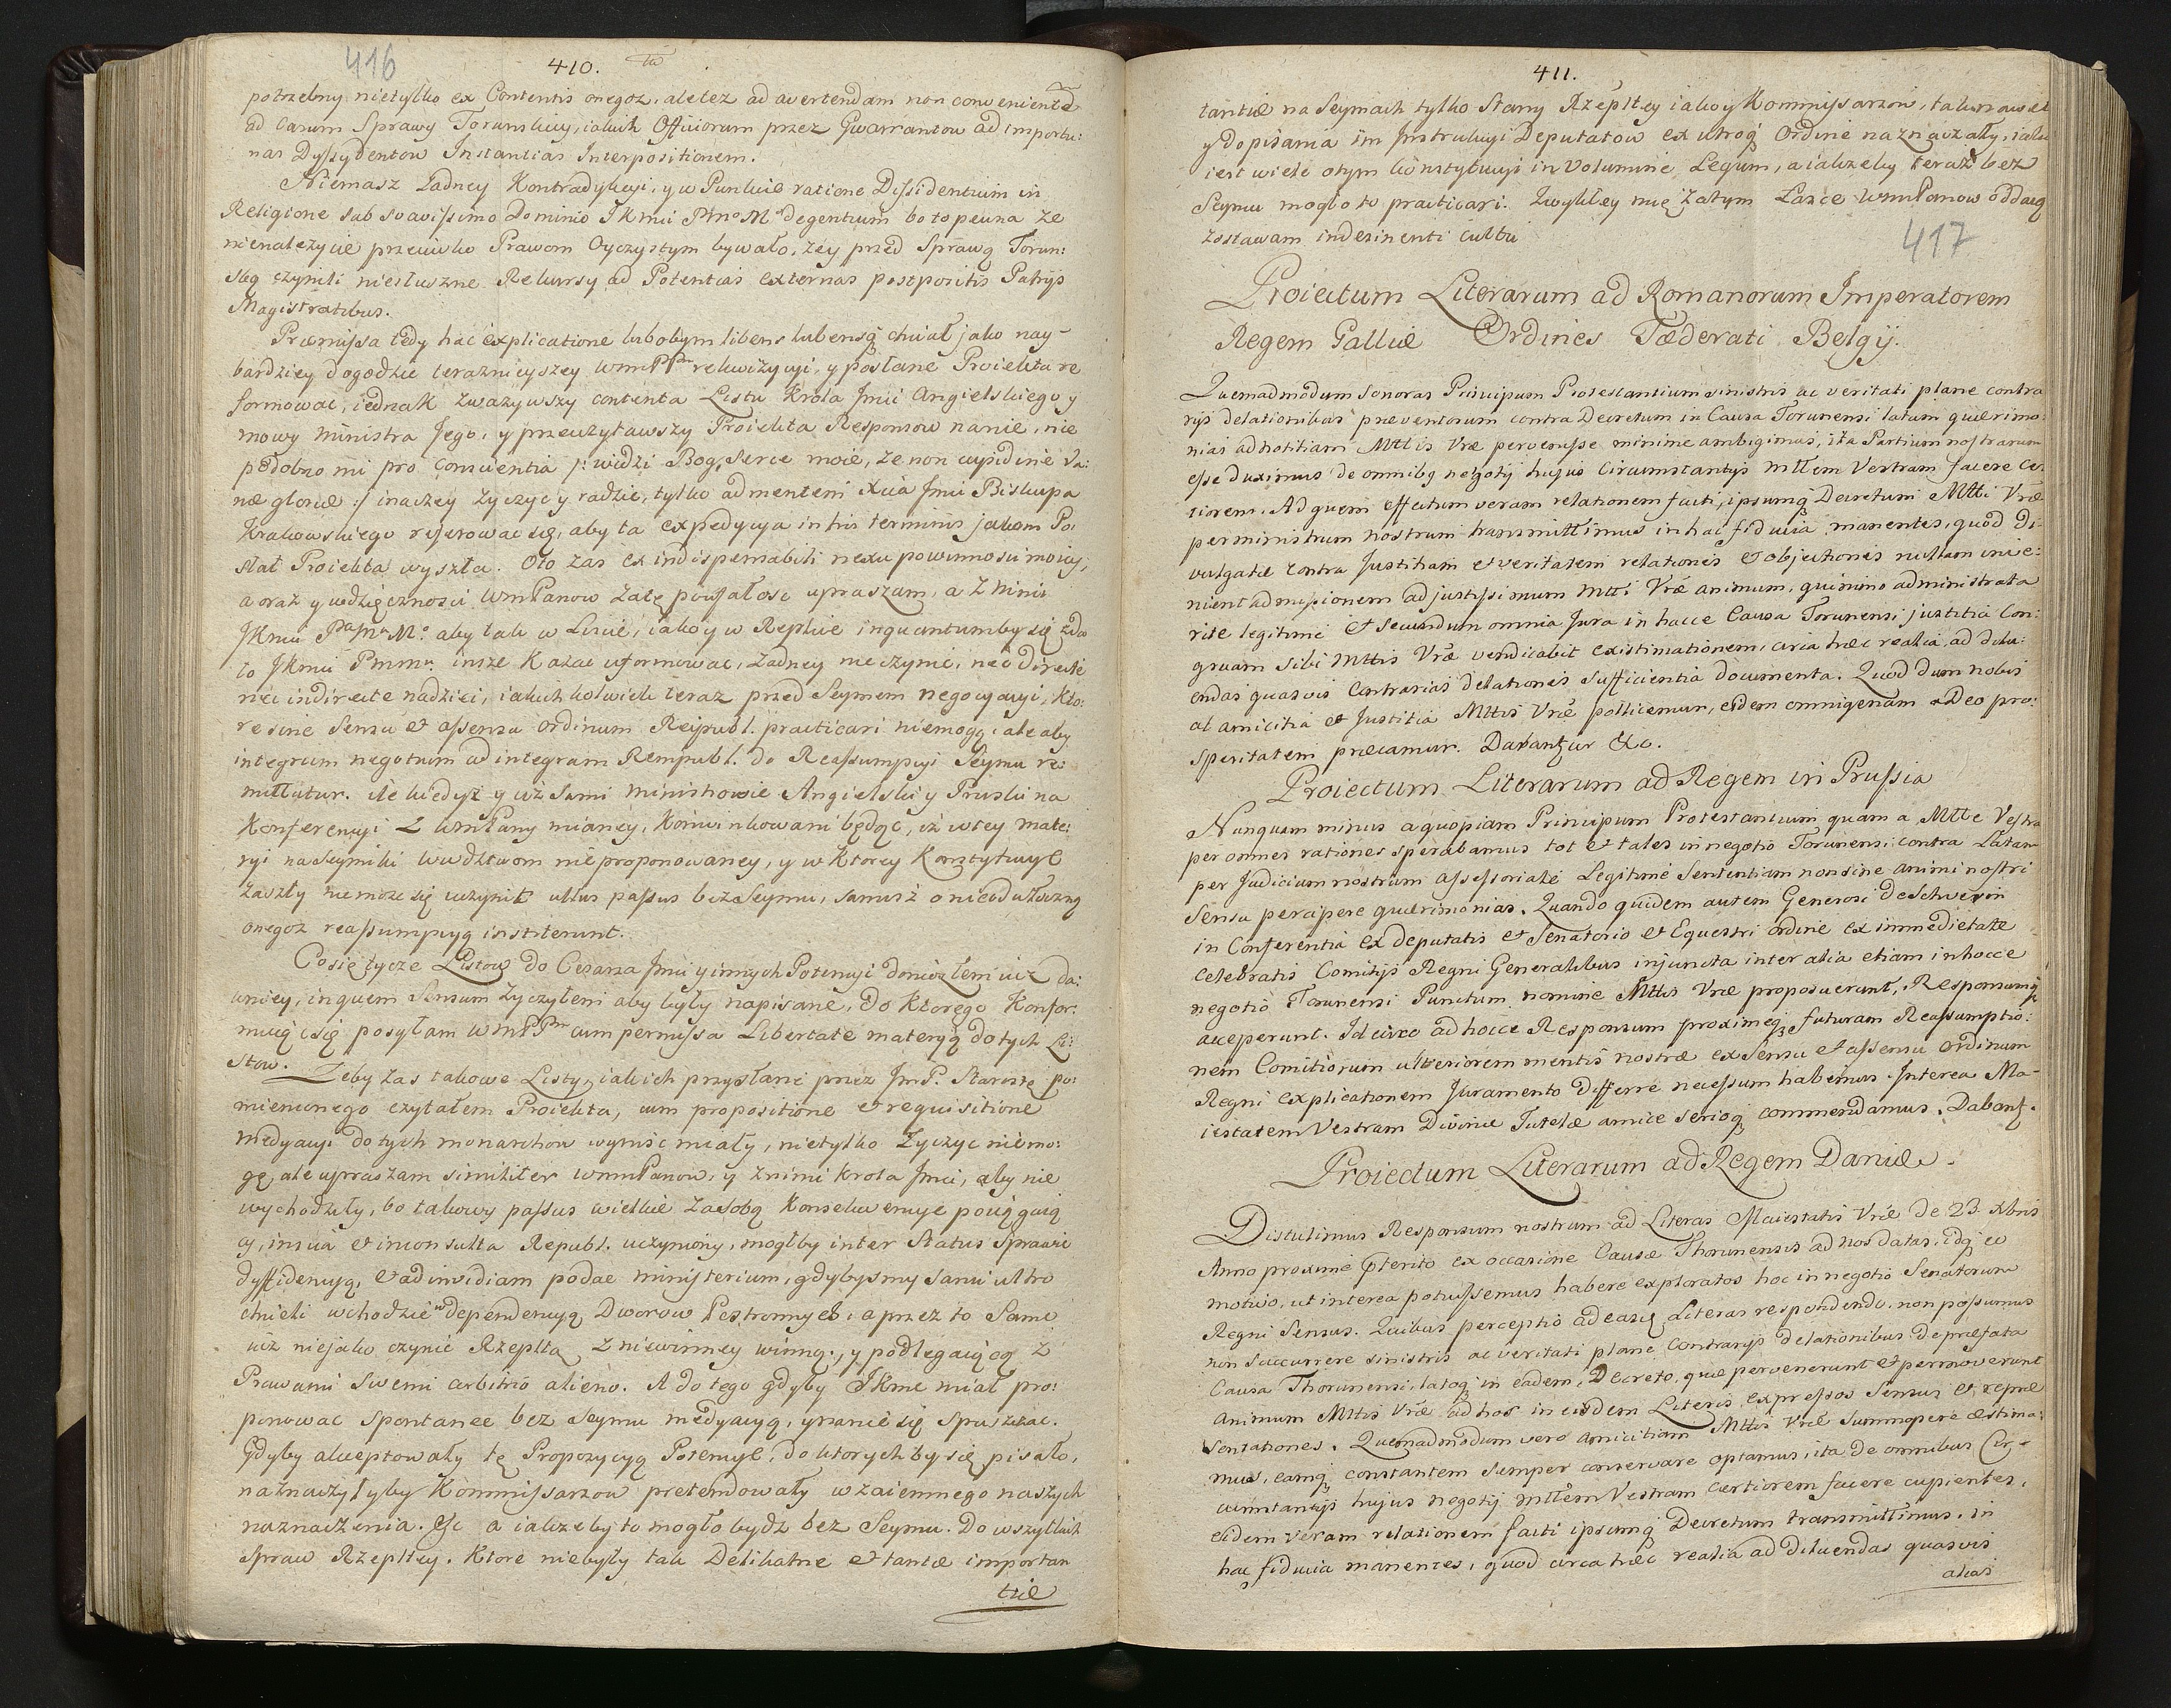 416
410.
potrzebny nietylko ex Contentis onegoż, aleteż ad avertendam non convenientē
ad Casum Sprawy Toruńskiey, iakich Officiorum przez Gwarrantow ad importu:
nas Dyssydentow Instantias Interpositionem.
Niemasz żadney Kontradykcyi, y w Punkcie ratione Dissidentium in
Religione sub suavissimo Dominio JKmci degentium bo to pewna że
nienależycie przeciwko Prawom Oyczystym bywało, żey przed Sprawą Torun:
ską czynili niesłuszne Rekursy ad Potentias externas postpositis Patrijs
Magistratibus.
Præmissa tedy hac explicatione lubobym libens lubensq chciał jako nay-
bardziey dogodzić teraznieyszey rekwizycyi, y posłane Proiekta re
formować, iednak zważywszy contenta Listu Krola Jmci Angielskiego y
mowy Ministra Jego, y przeczytawszy Proiekta Responsow nanie, nie
podobno mi pro Conscientia /: widzi Bog, Serce moie, że non cupidine Va:
næ gloriæ :/ inaczey życzyć y radzić, tylko ad mentem Xcia Jmci Biskupa
Krakowskiego referować się, aby ta expedycya in his terminis jakom Po:
słał Proiekta wyszła. Oto zas ex indispensabili nexu powinnosci moiey,
a oraz y wdzięcznosci WmPanow załę poufałosc upraszam, a Znimi
JKmci aby tak w Liscie, iako y w Replice inquantumby się zda
ło JKmci insze Kazać uformować, żadney nieczynić, nec directe
nec indirecte nadziei, iakichkolwiek teraz przed Seymem negocyacyi, Kto:
re sine Sensu et assensu ordinum Reipubl. practicari niemogą, ale aby
integrum negotium ad integram Rempubl. do Reassumpcyi Seymu re:
mittatur. Ale kiedyż y iuż sami Ministrowie Angielski y Pruski na
Konferencyi z WmPany mianey, Konwinkowani będąc, iż wtey mate:
ryi na Seymiki Wwdztwom nieproponowaney, y w Ktorey Konstytucye
zaszły niemoże się uczynić ullus passus bez Seymu, samisż o nieodwłoczną
onegoż reassumpcyą institerunt.
Co się tycze Listow do Cesarza Jmci y innych Potencyi doniosłem iuż da:
wniey, in quem Sensum życzyłem aby były napisane, do Ktorego Konfor:
muiąc się posyłam cum permissa Libertate materyą do tych Li:
stow. Zeby zas takowe Listy, iakich przysłane przez JmP. Starostę po:
mienionego czytałem Proiekta, cum propositione et requisitione
medyacyi do tych monarchow wynisc miały, nietylko życzyć niemo:
gę, ale upraszam similiter WmPanow, y znimi Krola Jmci, aby nie
wychodziły, bo takowy passus wielkie zasobą Konsekwencye pociągaią
cy, inscia et inconsulta Republ. uczyniony, mogłby inter Status Sprawić
dyffidencyą, et ad invidiam podać ministerium, gdybysmy sami ultro
chcieli wchodzić w dependencyą Dworow Postronnych, a przez to Same
iuż niejako czynić Rzeplta z niewinney winną, y podlegaiącą z
Prawami Swemi arbitrio alieno. A do tego gdyby JKmc miał pro:
ponować spontanee bez Seymu medyacyą, y nanię się spuszczać.
Gdyby akceptowały tę Propozycyą Potencye, do ktorych by się pisało,
naznaczyłyby Kommissarzow pretendowały wzaiemnego naszych
naznaczenia. Ec a iakżeby to mogło bydz bez Seymu. Do wszytkich
Spraw Rzepltey. Ktore niebyły tak Delikatne et tantæ importan
tiæ
411.
tantiæ na Seymach tylko Stany Rzepltey iako y Kommissarzow, tak
y dopisania im Instrukcyi Deputatow ex utroq Ordine naznaczały, iako
iest wiele otym Konstytucyi in Volumine Legum, a iakżeby teraz bez
Seymu mogło to practicari. Zwykłey mię zatym Łasce WmPanow oddaię
zostawam indesinenti cultu
417
Proiectum Literarum ad Romanorum Imperatorem
Regem Galliæ Ordines Fæderati Belgij.
Quemadmodum sonoras Principum Protestantium sinistris ac veritati plane contra
rijs delationibus præventorum contra Decretum in Causa Torunensi latum quærimo
nias ad notitiam Mttis Vræ pervenisse minime ambigimus, ita Partium nostrarum
esse duximus de omnibq negotij hujus Circumstantijs Mttem Vestram facere Cer
tiorem. Ad quem effectum veram relationem facti, ipsumq Decretum Mtti Vræ
per ministrum nostrum transmittimus in hac fiducia manentes, quod di-
vulgatæ contra Justitiam et veritatem relationes et objectiones nullam inve:
nient admissionem ad justissimum Mtti Vræ animum, quinimo administrata
rite legitime et secundum omnia Jura in hacce Causa Torunensi justitia Con:
gruam sibi Mttis Vræ vendicabit existimationem, circa hæc realia ad dilu:
endas quasvis Contrarias delationes sufficientia documenta. Quod dum nobis
ab amicitia et Justitia Mttis Vræ pollicemur, eidem omnigenam a Deo pro:
speritatem præcamur. Dabantur &c.
Proiectum Literarum ad Regem in Prussia
Nunquam minus a quopiam Principum Protestantium quam a Mtte Vestra
per omnes rationes sperabamus tot et tales in negotio Torunensi contra Latam
per Judicium nostrum assessoriale Legitime Sententiam non sine animi nostri
Sensu percipere quærimonias. Quando quidem autem Generosi de Schwerin
in Conferentia ex deputatis et Senatorio et Equestri ordine ex immedietate
celebratis Comitijs Regni Generalibus injuncta inter alia etiam in hocce
negotio Torunensi Punctum nomine Mttis Vræ proposuerunt, Responsumq
acceperunt. Idcirco ad hocce Responsum proximeq futuram Reassumptio:
nem Comitiorum ulteriorem mentis nostræ ex Sensu et assensu Ordinum
Regni explicationem Juramento Differre necessum habemus. Interea Ma-
iestatem Vestram Divinæ Tutelæ amice serioq commendamus. Dabant.
Proiectum Literarum ad Regem Daniæ.
Distulimus Responsum nostrum ad Literas Maiestatis Vræ de 23 Xbris
Anno proxime pterito ex occasione Causæ Thorunensis ad nos datas, idq eo
motivo, ut interea potuissemus habere exploratos hoc in negotio Senatorum
Regni Sensus. Quibus perceptis ad easq Literas respondendo, non possumus
non succurrere sinistris ac veritati plane Contrarijs delationibus de præfata
Causa Thorunensi, latoq in eadem Decreto, quæ pervenerunt et permoverunt
animum Mttis Vræ ad hos in eisdem Literis expressos Sensus et repræ
sentationes. Quemadmodum vero amicitiam Mttis Vræ summopere æstima:
mus, eamq constantem semper conservare optamus, ita de omnibus Cir-
cumstantijs hujus negotij Mttem Vestram certiorem facere cupientes,
eidem veram relationem facti ipsumq Decretum transmittimus, in
hac fiducia manentes, quod circa hæc realia ad diluendas quasvis
alias